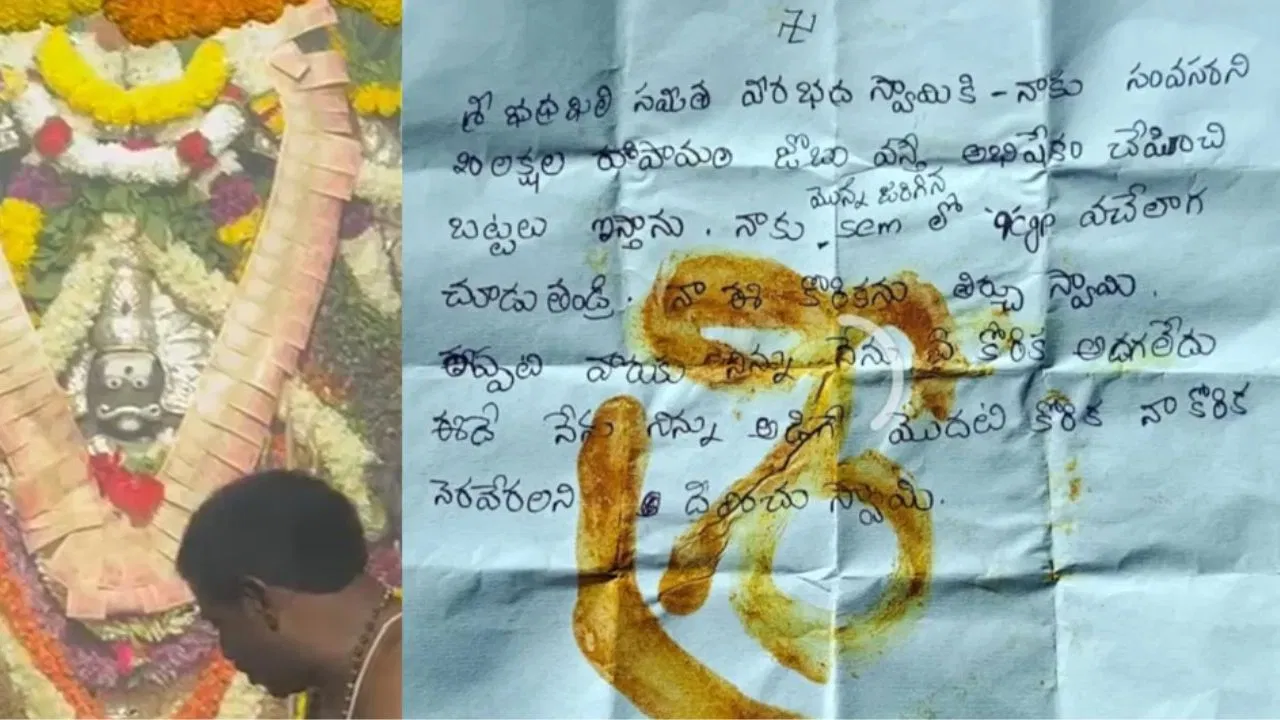 శ్రీ భధ్రఖాలి సమేత వీరభద్ర స్వామికి - నాకు సంవసరని
20 లక్షల రుపాయల జాబు వస్తే అభిషేకం చేయించి
మొన్న జరిగిన
బట్టలు ఇస్తాను. నాకు sem లో 9Cgp వచేలాగ
చూడు తండ్రి. నా ఈ కోరికను తిర్చు స్వామి.
ఇప్పటి వారుకు నిన్ను నేను ఏ కోరిక అడగలేదు
ఈదే నేను నిన్ను అడిగే మొదటి కోరిక నా కోరిక
నెరవేరలని స్వామి.